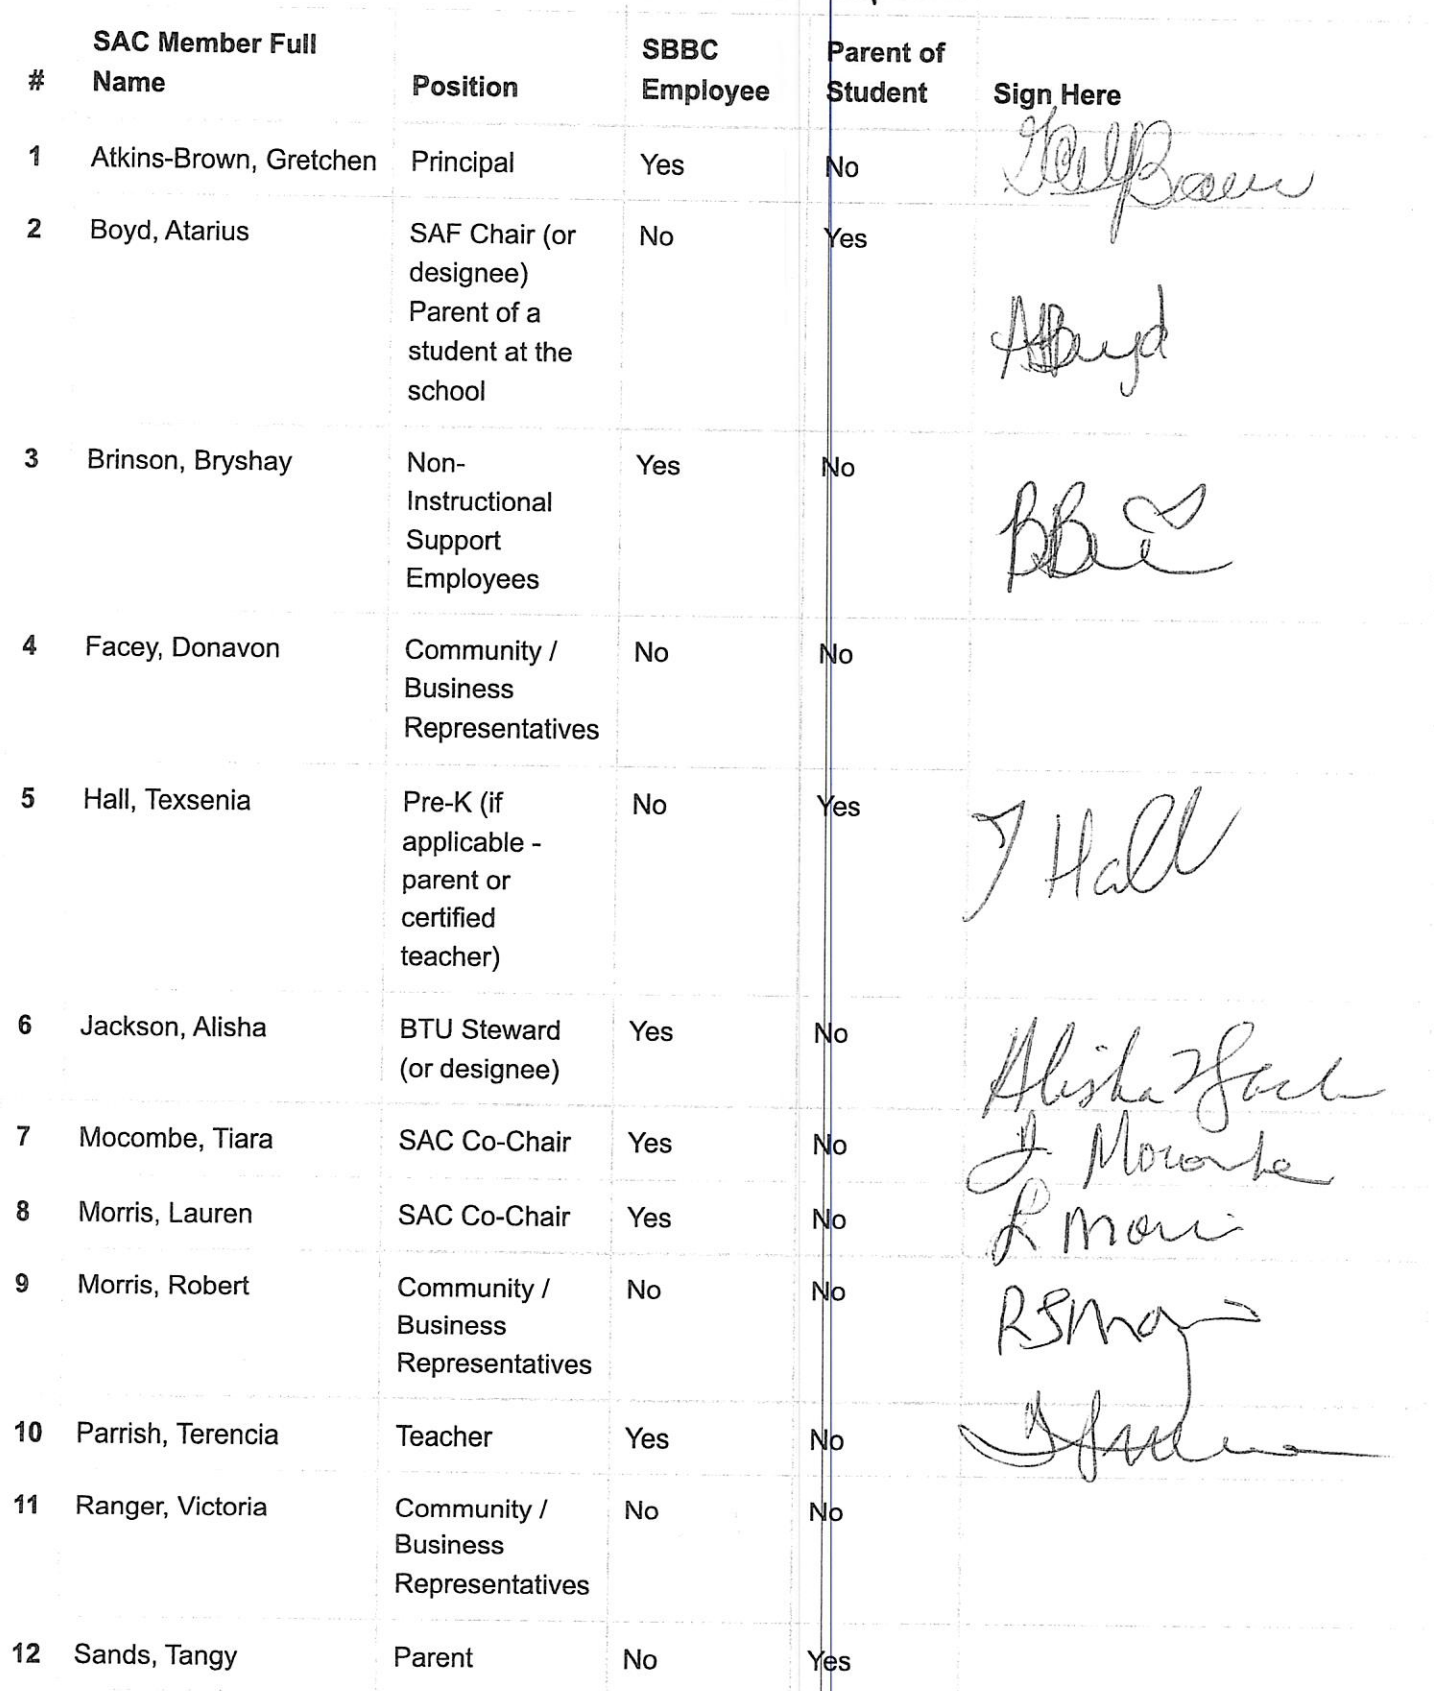 SAC Member Full
Name
#
Position
SBBC
Employee
Parent of
Student
Sign Here
1 Atkins-Brown, Gretchen Principal Yes No
2 Boyd, Atarius SAF Chair (or No Yes
designee)
Parent of a
student at the
school
ABoyd
3 Brinson, Bryshay Non- Yes No
Instructional
Support
Employees
4 Facey, Donavon Community / No No
Business
Representatives
5 Hall, Texsenia Pre-K (if No Yes
applicable -
parent or
certified
teacher)
T Hall
6 Jackson, Alisha BTU Steward Yes No
(or designee)
Alisha
7 Mocombe, Tiara SAC Co-Chair Yes No T. Mocombe
8 Morris, Lauren SAC Co-Chair Yes No L Morris
9 Morris, Robert Community / No No
Business
Representatives
10 Parrish, Terencia Teacher Yes No
11 Ranger, Victoria Community / No No
Business
Representatives
12 Sands, Tangy Parent No Yes